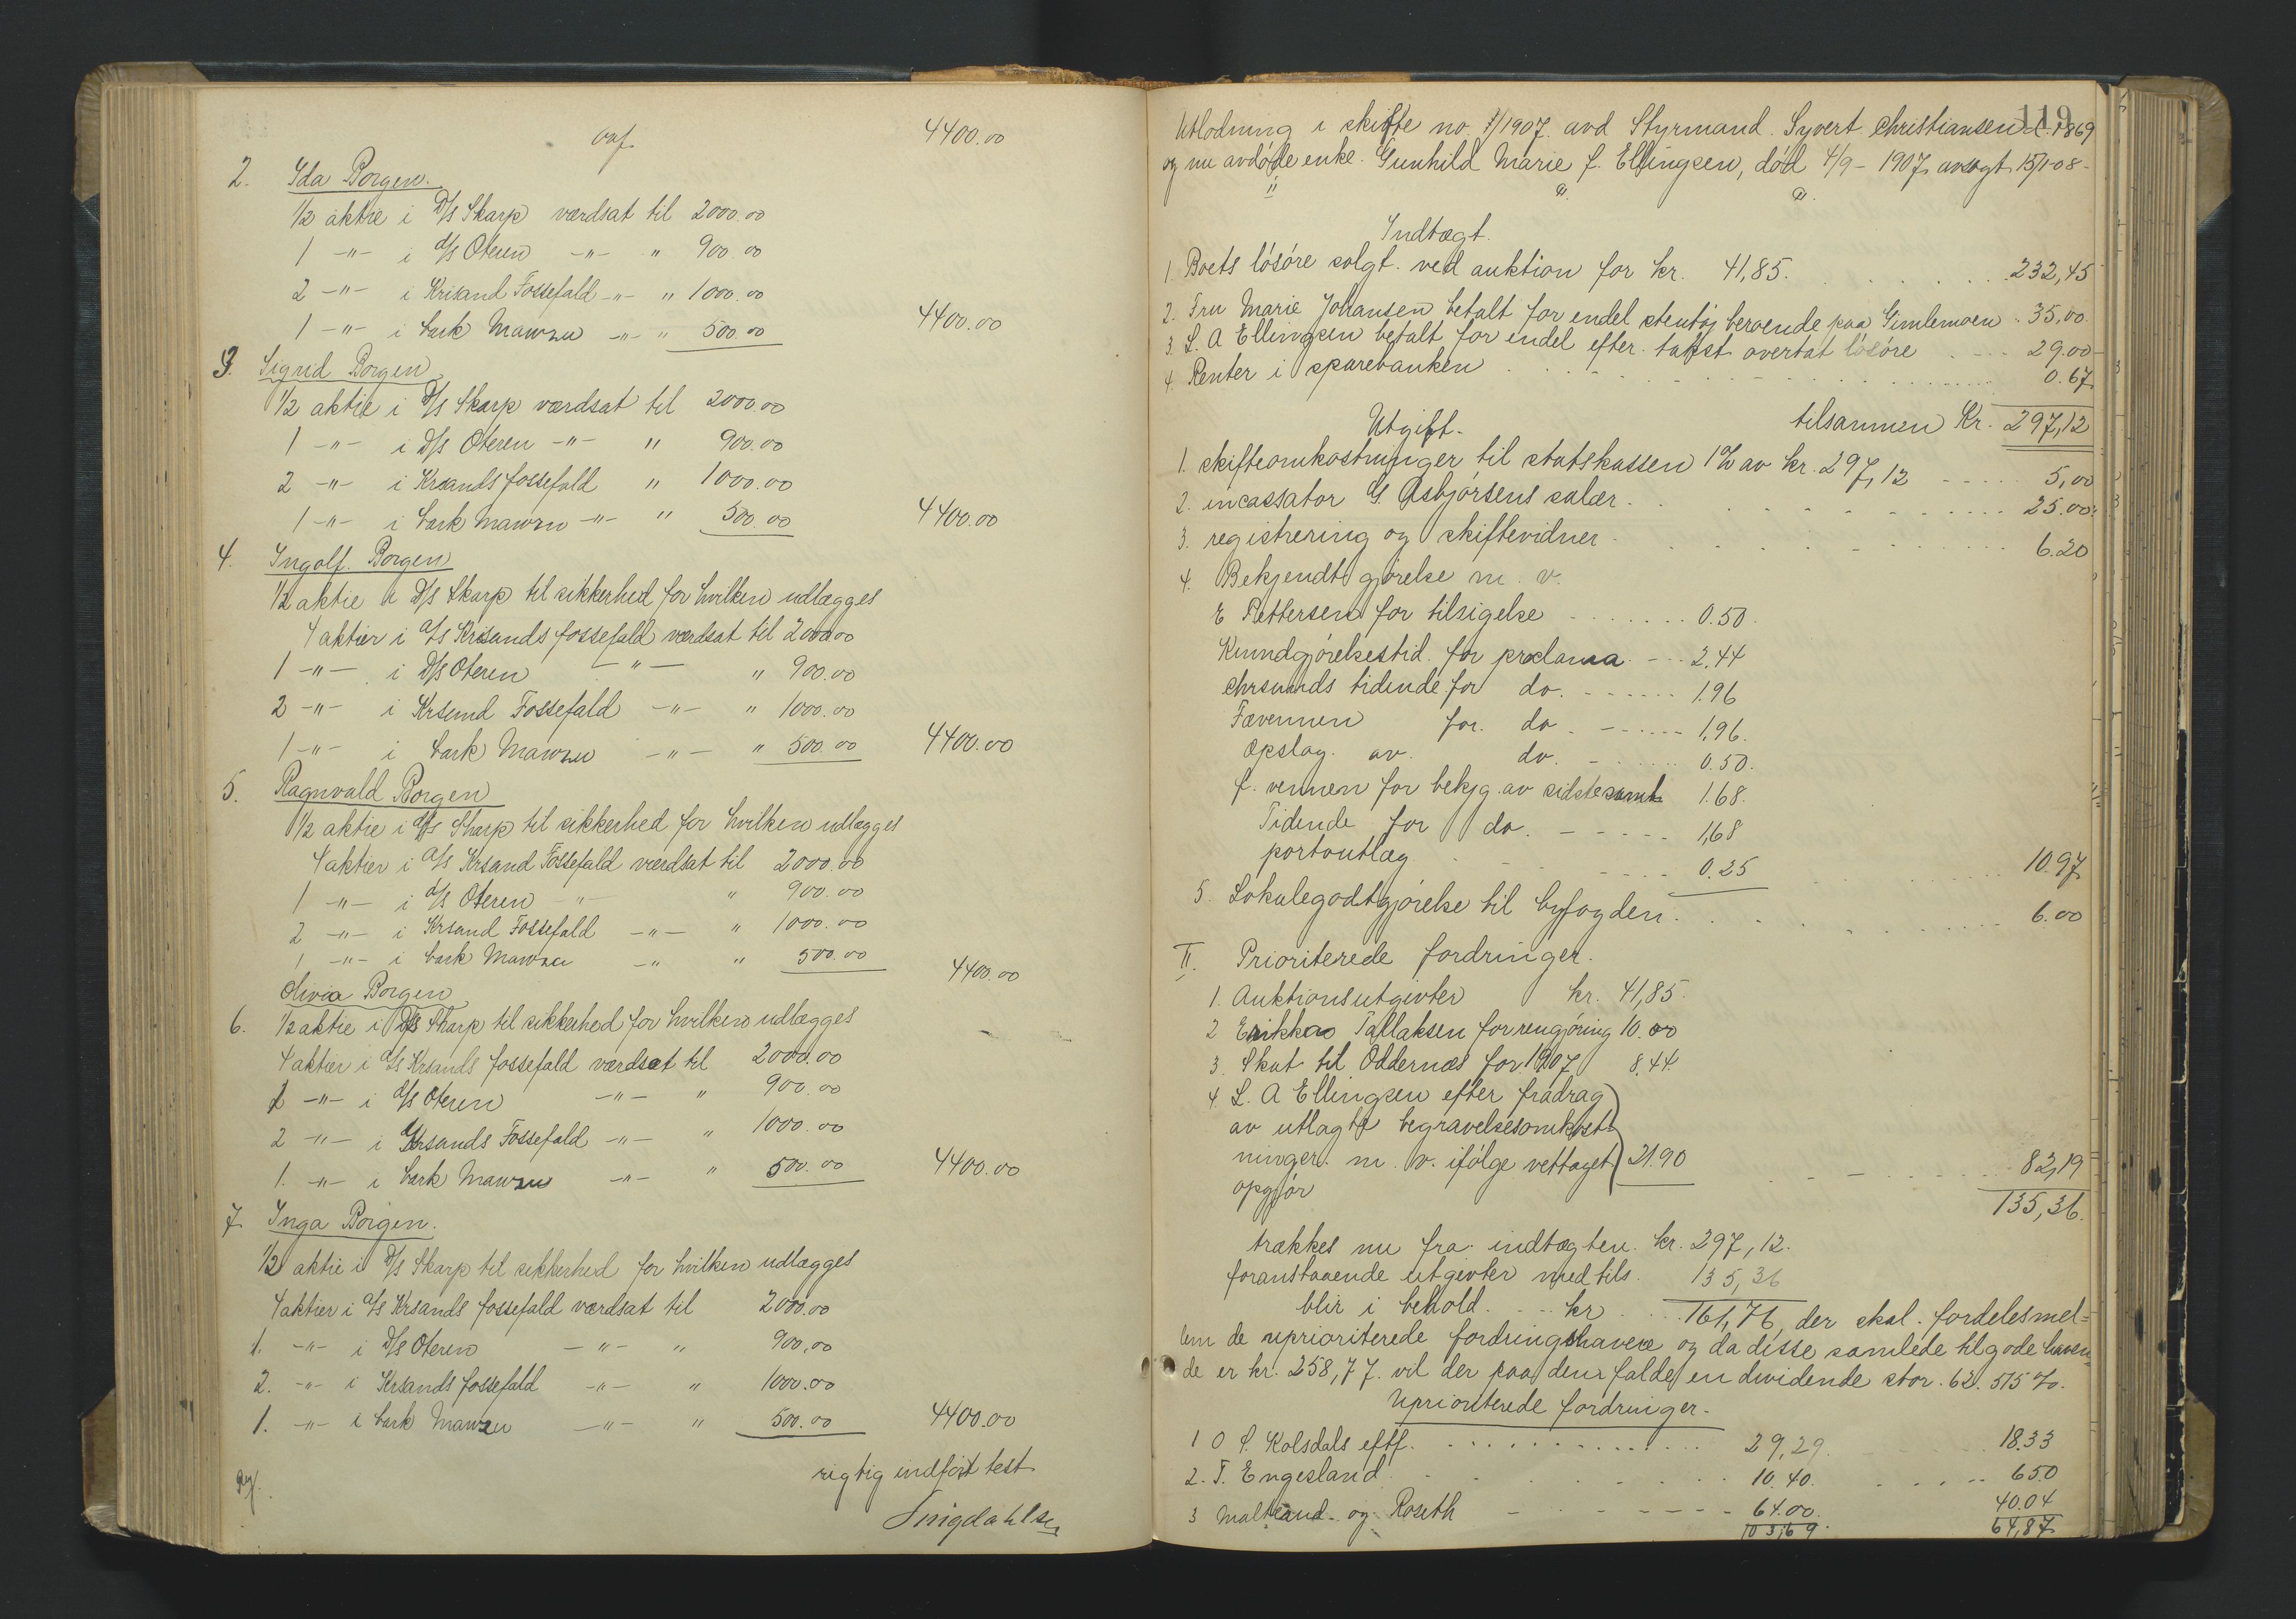 ovf. 4400.00
2. Ida Borgen.
1/2 aktie i D/S Skarp værdsat til 2000.00
1 -"- i d/s Oteren -"- " 900.00
2 -"- i Krisand Fossefald -"- " 1000.00
1 -"- i bark Mawzu -"- " 500.00 4400.00
3. Sigrid Borgen
1/2 aktie i D/S Skarp værdsat til 2000.00
1 -"- i D/S Oteren -"- " 900.00
2 -"- i Krsands fossefald " 1000.00
1 -"- i bark Mawzu -"- " 500.00 4400.00
4. Ingolf. Borgen
1/2 aktie i D/S Skarp til sikkerhed for hvilken udlægges
4 aktier i a/s Krisands fossefald værdsat til 2000.00
1 -"- i D/S Oteren -"- " 900.00
2 -"- i Krsand Fossefald -"- " 1000.00
1 -"- i bark Mawzu -"- " 500.00 4400.00
5. Ragnvald Borgen
1/2 aktie i d/s Skarp til sikkerhed for hvilken udlægges
4 aktier i a/s Krsand Fossefald værdsat til 2000.00
1 -"- i d/s Oteren -"- " 900.00
2 -"- i Krsand Fossefald -"- " 1000.00
1 -"- i bark Mawzu -"- " 500.00 4400.00
Olivia Borgen
6. 1/2 aktie i D/S Skarp til sikkerhed for hvilken udlægges
4 aktier i a/s Krsands fossefald værdsat til 2000.00
1 -"- i d/s Oteren -"- " 900.00
2 -"- i Krsands Fossefald -"- " 1000.00
1. -"- i bark Mawzu -"- " 500.00 4400.00
7. Inga Borgen.
1/2 aktie i D/S Skarp til sikkerhed for hvilken udlægges
4 aktier i a/s Krsands fossefald værdsat til 2000.00
1. -"- i D/S Oteren -"- " 900.00
2. -"- i Krsands fossefald -"- " 1000.00
1. -"- i bark Mawzu -"- " 500.00 4400.00
rigtig indført test
Singdahlsen
119
Utlodning i skifte no. 7/1907. avd Styrmand. Syvert Christiansen d. 1869
og nu avdøde enke. Gunhild Marie f. Ellingsen, død 4/9 - 1907, avsagt 15/1-08-
Indtægt.
1. Boets løsøre solgt. ved auktion for kr. 41,85. 232,45
2. Fru Marie Johansen betalt for endel stentøj beroende paa Gimlemoen 35,00
3. L. A Ellingsen betalt for endel efter. takst overtat løsøre 29.00
4. Renter i sparebanken 0.67
tilsammen Kr. 297,12
Utgift.
1. skifteomkostninger til statskassen 1% av kr. 297,12 5,00
2. incassator G. Asbjørsens salær. 25.00
3. registrering og skiftevidner 6.20
4. Bekjendtgjørelse m. v.
E Pettersen for tilsigelse 0.50.
Kunndgjørelsestid. for proclama 2.44
Chrsunds tidende for do. 1.96
Fævennen for. do 1,96.
Opslag. av. do. 0.50.
f. vennen for bekjg. av sidste saml. 1.68.
Tidende for do. 1,68
portoutlæg 0.25 10.97
5. Lokalegodtgjørelse til byfogden. 6.00
II. Prioriterede fordringer.
1. Auktionsutgivter kr. 41,85.
2 Erikka Tallaksen for rengjøring 10.00
3. Skat til Oddernæs for 1907 8.44
4. L. A Ellingsen efter fradrag
av utlagte begravelsesomkost-
ninger. m. v. ifølge vettaget 21.90 82,19
opgjør 135,36.
trækkes nu fra indtægten. kr. 297,12.
foranstaaende utgivter med tils. 135,36
blir i behold. kr 161,76, der skal fordeles mel=
lem de uprioriterede fordringshavere og da disse samlede tilgodehaven-
de er kr. 258,77. vil der paa dem falde en dividende stor. 62.515 %.
Uprioriterede fordringer.
1 O S. Kolsdals eftf. 29,29. 18.33
2. T. Engesland. 10.40. 6.50
3 Maltland og Roseth 64.00. 40.04
103,69. 64,87